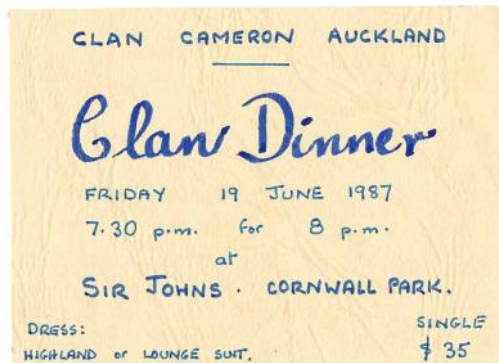 CLAN CAMERON AUCKLAND
Clan Dinner
FRIDAY 19 JUNE 1987
7.30 p.m. for 8 p.m.
at
SIR JOHNS . CORNWALL PARK.
DRESS:
HIGHLAND or LOUNGE SUIT.
SINGLE
$ 35